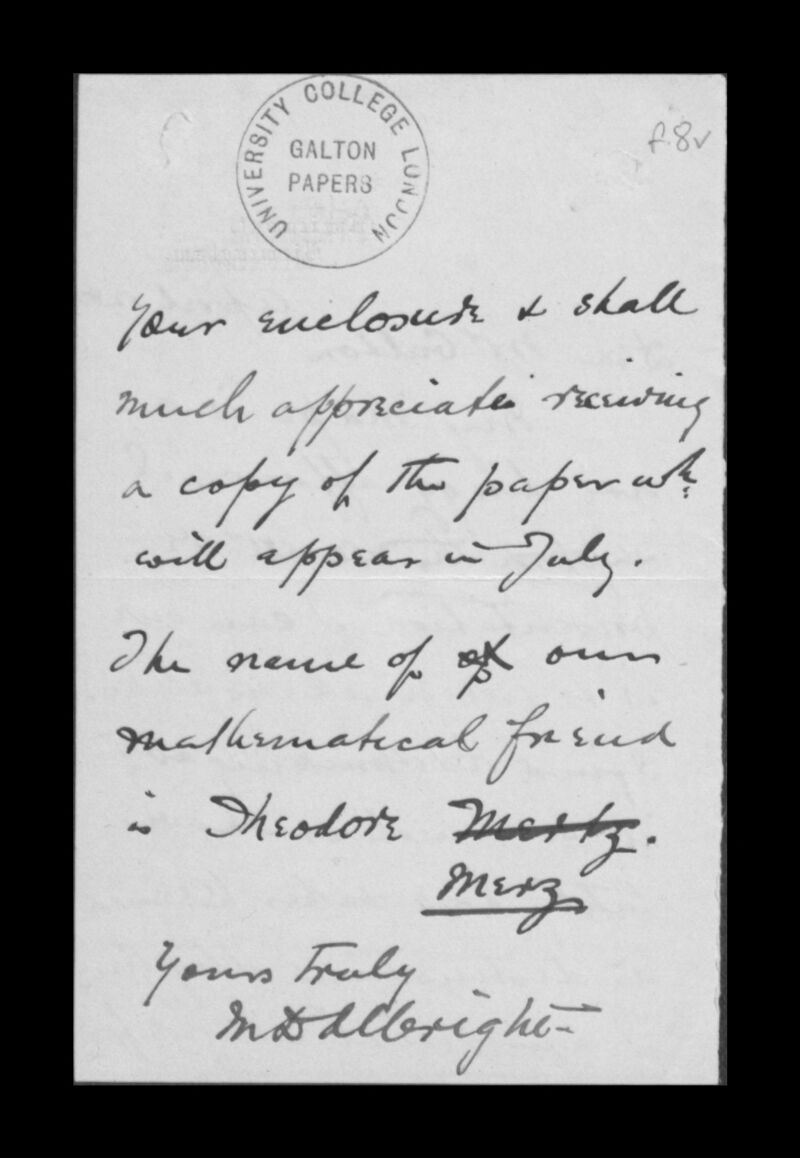 UNIVERSITY COLLEGE LONDON
GALTON
PAPERS
f.8v
Your enclosure & shall
much appreciate receiving
a copy of the paper wh:
will appear in July.
The name of our
mathematical friend
is Theodore Mertz.
Merz
Yours truly
M D Albright